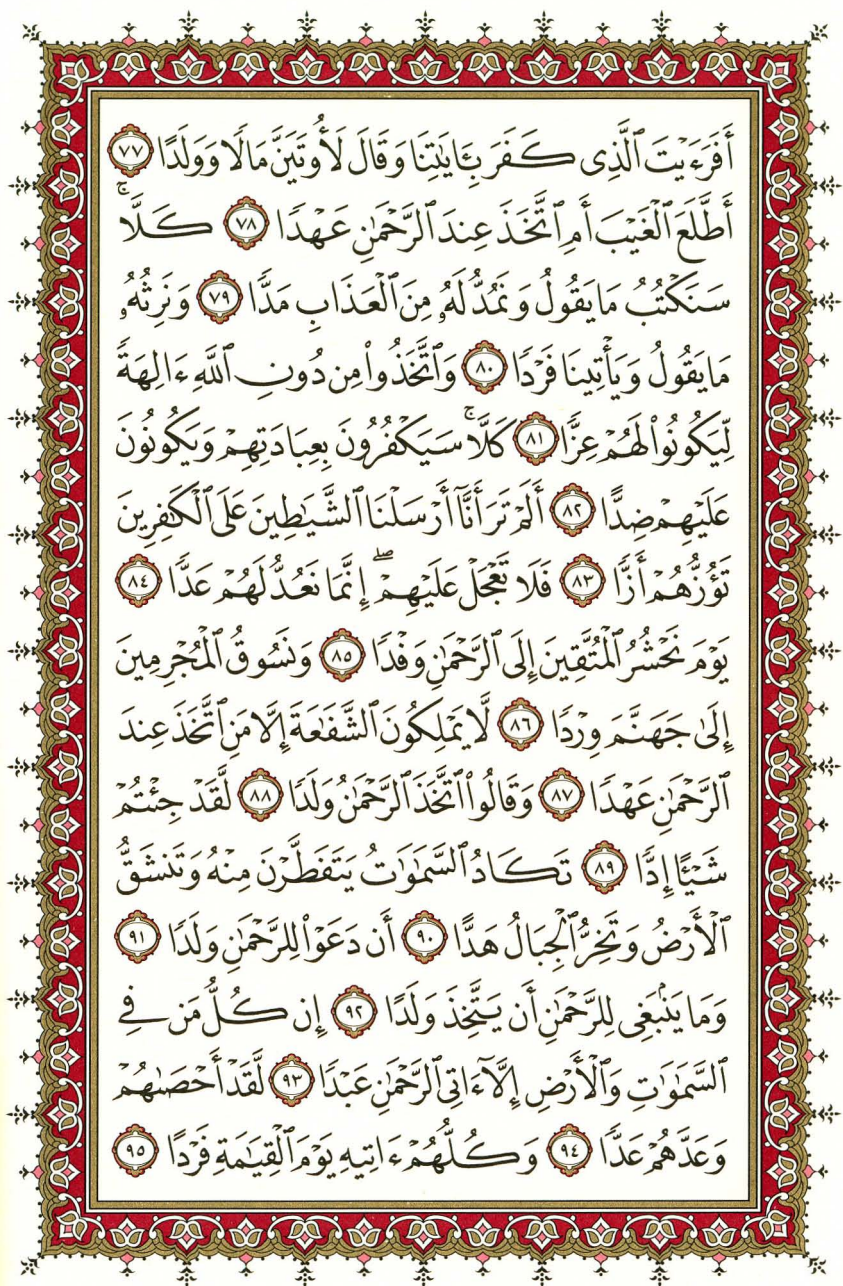 أَفَرَءَيْتَ ٱلَّذِى كَفَرَ بِـَٔايَٰتِنَا وَقَالَ لَأُوتَيَنَّ مَالًا وَوَلَدًا ٧٧
أَطَّلَعَ ٱلْغَيْبَ أَمِ ٱتَّخَذَ عِندَ ٱلرَّحْمَٰنِ عَهْدًا ٧٨ كَلَّا ۚ
سَنَكْتُبُ مَا يَقُولُ وَنَمُدُّ لَهُۥ مِنَ ٱلْعَذَابِ مَدًّا ٧٩ وَنَرِثُهُۥ
مَا يَقُولُ وَيَأْتِينَا فَرْدًا ٨٠ وَٱتَّخَذُوا۟ مِن دُونِ ٱللَّهِ ءَالِهَةً
لِّيَكُونُوا۟ لَهُمْ عِزًّا ٨١ كَلَّا ۚ سَيَكْفُرُونَ بِعِبَادَتِهِمْ وَيَكُونُونَ
عَلَيْهِمْ ضِدًّا ٨٢ أَلَمْ تَرَ أَنَّآ أَرْسَلْنَا ٱلشَّيَٰطِينَ عَلَى ٱلْكَٰفِرِينَ
تَؤُزُّهُمْ أَزًّا ٨٣ فَلَا تَعْجَلْ عَلَيْهِمْ ۖ إِنَّمَا نَعُدُّ لَهُمْ عَدًّا ٨٤
يَوْمَ نَحْشُرُ ٱلْمُتَّقِينَ إِلَى ٱلرَّحْمَٰنِ وَفْدًا ٨٥ وَنَسُوقُ ٱلْمُجْرِمِينَ
إِلَىٰ جَهَنَّمَ وِرْدًا ٨٦ لَّا يَمْلِكُونَ ٱلشَّفَٰعَةَ إِلَّا مَنِ ٱتَّخَذَ عِندَ
ٱلرَّحْمَٰنِ عَهْدًا ٨٧ وَقَالُوا۟ ٱتَّخَذَ ٱلرَّحْمَٰنُ وَلَدًا ٨٨ لَّقَدْ جِئْتُمْ
شَيْـًٔا إِدًّا ٨٩ تَكَادُ ٱلسَّمَٰوَٰتُ يَتَفَطَّرْنَ مِنْهُ وَتَنشَقُّ
ٱلْأَرْضُ وَتَخِرُّ ٱلْجِبَالُ هَدًّا ٩٠ أَن دَعَوْا۟ لِلرَّحْمَٰنِ وَلَدًا ٩١
وَمَا يَنۢبَغِى لِلرَّحْمَٰنِ أَن يَتَّخِذَ وَلَدًا ٩٢ إِن كُلُّ مَن فِى
ٱلسَّمَٰوَٰتِ وَٱلْأَرْضِ إِلَّآ ءَاتِى ٱلرَّحْمَٰنِ عَبْدًا ٩٣ لَّقَدْ أَحْصَىٰهُمْ
وَعَدَّهُمْ عَدًّا ٩٤ وَكُلُّهُمْ ءَاتِيهِ يَوْمَ ٱلْقِيَٰمَةِ فَرْدًا ٩٥